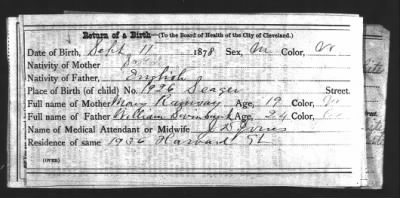 Return of a Birth—(To the Board of Health of the City of Cleveland.)
Date of Birth, Sept 11 1878 Sex, M Color, W
Nativity of Mother
Nativity of Father, English
Place of Birth (of child) No. 1936 Seager Street.
Full name of Mother Mary Ramsay Age, 19 Color, W
Full name of Father William Age, 24 Color,
Name of Medical Attendant or Midwife
Residence of same 1936 Harvard St
(OVER)